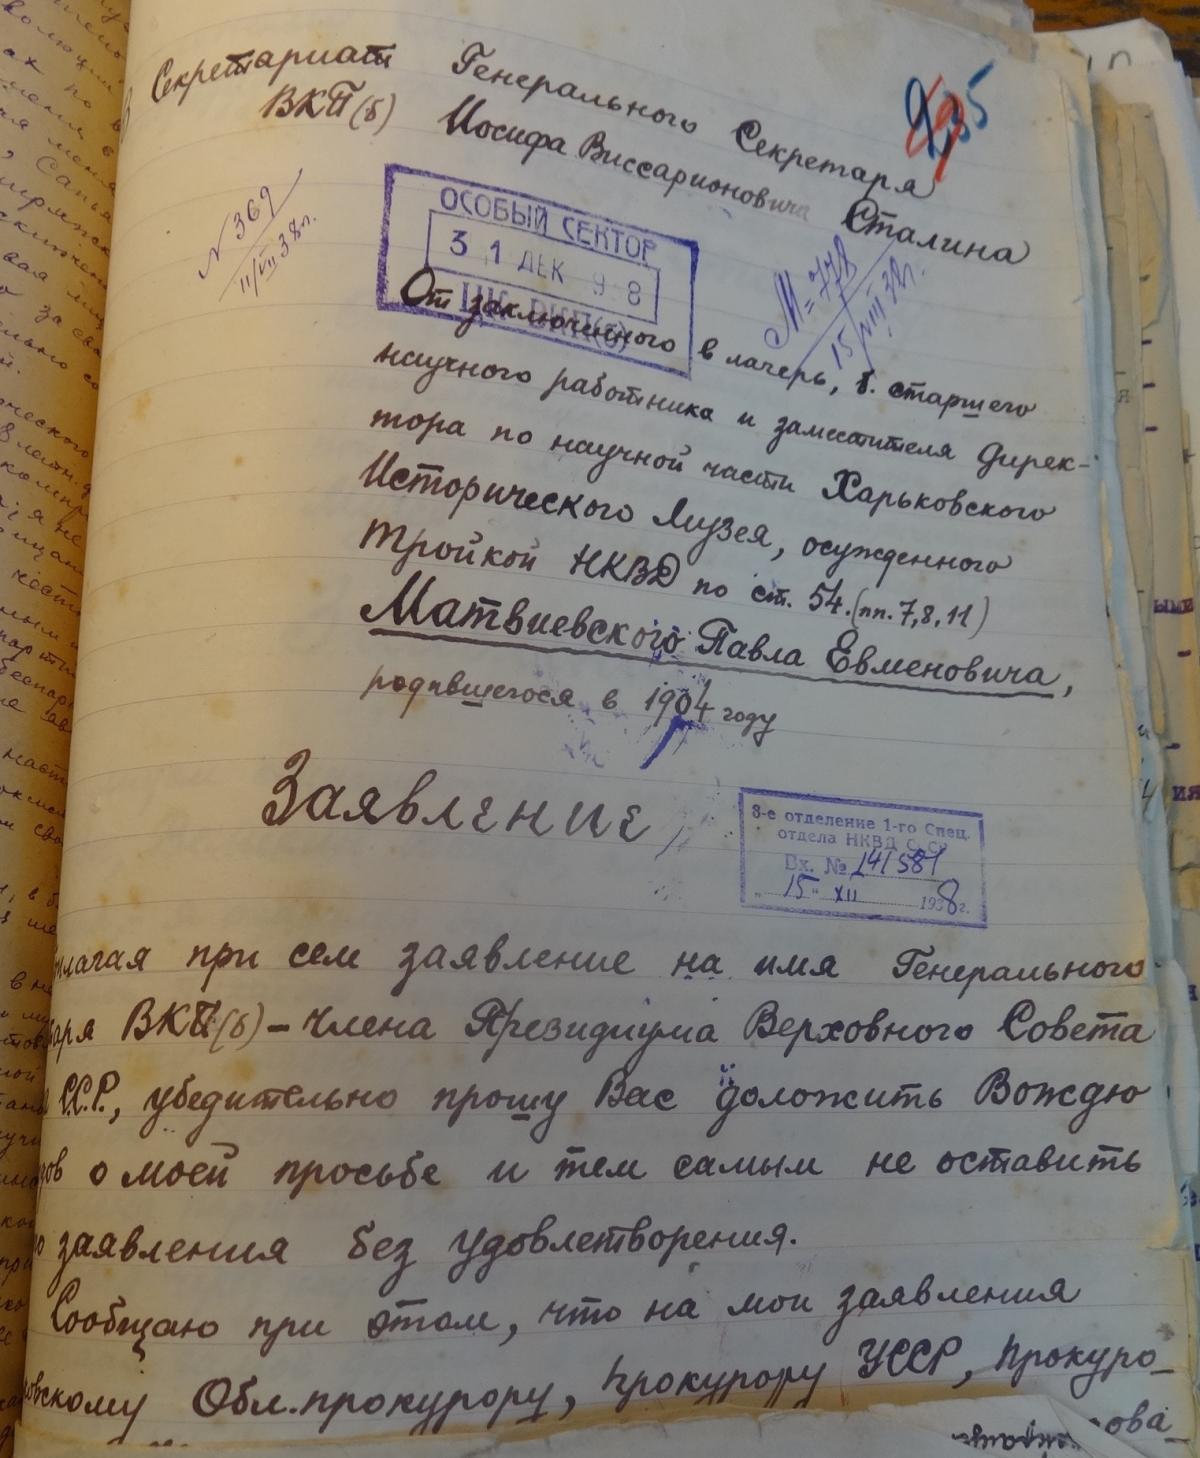 Секретариат Генерального Секретаря
ВКП(б) Иосифа Виссарионовича Сталина
235
№ 369
11/VII 38г.
ОСОБЫЙ СЕКТОР
31 ДЕК 9 8
ЦК ВКП(б)
15 VIII 38г.
От заключенного в лагерь, б. старшего
научного работника и заместителя дирек-
тора по научной части Харьковского
Исторического Музея, осужденного
тройкой НКВД по ст. 54. (пп. 7, 8, 11)
Матвиевского Павла Евменовича,
родившегося в 1904 году
Заявление
8-е отделение 1-го Спец.
отдела НКВД СССР
Вх. № 141581
"15" XII 1938 г.
при сем заявление на имя Генерального
ВКП(б) – члена Президиума Верховного Совета
С.С.Р., убедительно прошу Вас доложить Вождю
о моей просьбе и тем самым не оставить
заявления без удовлетворения.
Сообщаю при этом, что на мои заявления
Обл. прокурору, прокурору УССР, Прокуро-